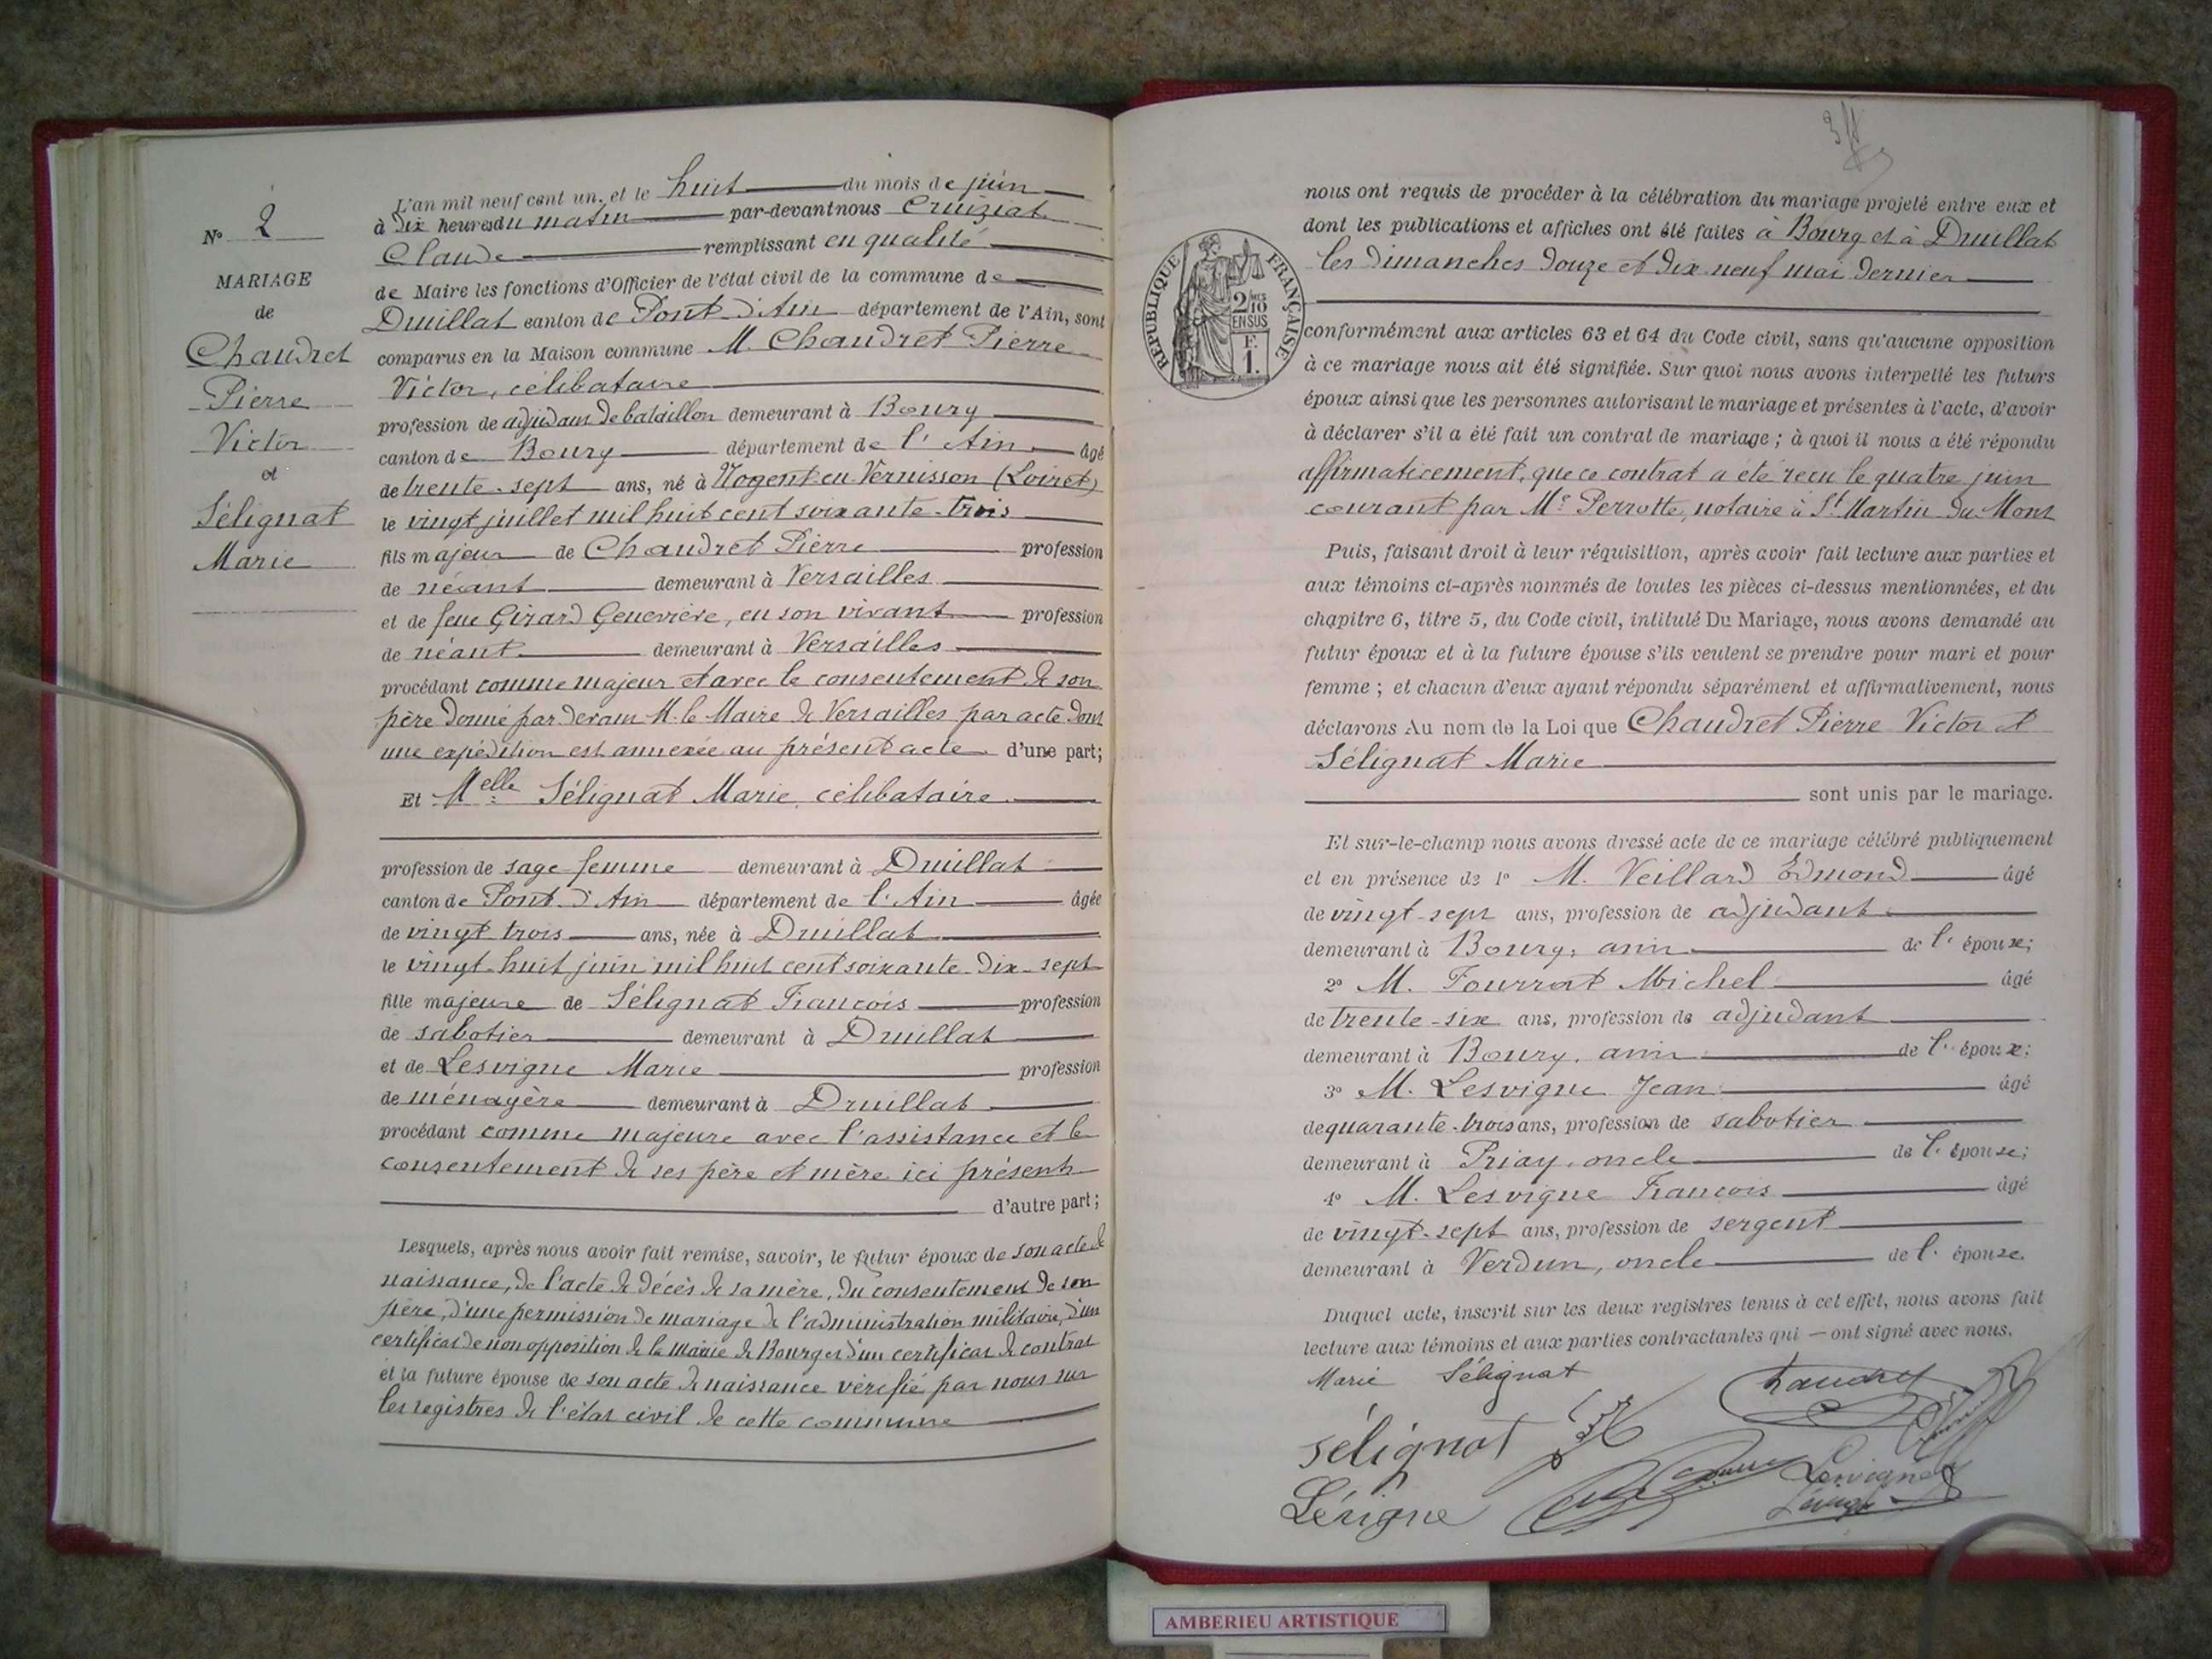 N° 2
MARIAGE
de
Chaudret
Pierre
Victor
et
Sélignat
Marie
L'an mil neuf cent un, et le huit du mois de juin
à dix heures du matin par-devant nous Cruiziat
Claude remplissant en qualité
de Maire les fonctions d'Officier de l'état civil de la commune de
Druillat canton de Pont d'Ain département de l'Ain, sont
comparus en la Maison commune M. Chaudret Pierre
Victor, célibataire
profession de adjudant de bataillon demeurant à Bourg
canton de Bourg département de l'Ain âgé
de trente-sept ans, né à Nogent-en-Vernisson (Loiret)
le vingt juillet mil huit cent soixante-trois
fils majeur de Chaudret Pierre profession
de néant demeurant à Versailles
et de feue Girard Geneviève, en son vivant profession
de néant demeurant à Versailles
procédant comme majeur et avec le consentement de son
père donné par devant M. le Maire de Versailles par acte dont
une expédition est annexée au présent acte d'une part;
Et Melle Sélignat Marie, célibataire
profession de sage-femme demeurant à Druillat
canton de Pont-d'Ain département de l'Ain âgée
de vingt trois ans, née à Druillat
le vingt-huit juin mil huit cent soixante-dix-sept
fille majeure de Sélignat François profession
de sabotier demeurant à Druillat
et de Lesvigne Marie profession
de ménagère demeurant à Druillat
procédant comme majeure avec l'assistance et le
consentement de ses père et mère ici présents
d'autre part;
Lesquels, après nous avoir fait remise, savoir, le futur époux de son acte de
naissance, de l'acte de décès de sa mère, du consentement de son
père, d'une permission de mariage de l'administration militaire, d'un
certificat de non opposition de la mairie de Bourg et d'un certificat de contrat
et la future épouse de son acte de naissance vérifié par nous sur
les registres de l'état civil de cette commune
RÉPUBLIQUE FRANÇAISE
2/10 MES
EN SUS
F.
1.
nous ont requis de procéder à la célébration du mariage projeté entre eux et
dont les publications et affiches ont été faites à Bourg et à Druillat
les dimanches douze et dix neuf mai dernier
conformément aux articles 63 et 64 du Code civil, sans qu'aucune opposition
à ce mariage nous ait été signifiée. Sur quoi nous avons interpellé les futurs
époux ainsi que les personnes autorisant le mariage et présentes à l'acte, d'avoir
à déclarer s'il a été fait un contrat de mariage ; à quoi il nous a été répondu
affirmativement, que ce contrat a été reçu le quatre juin
courant par Me Perrotte, notaire à St Martin du Mont
Puis, faisant droit à leur réquisition, après avoir fait lecture aux parties et
aux témoins ci-après nommés de toutes les pièces ci-dessus mentionnées, et du
chapitre 6, titre 5, du Code civil, intitulé Du Mariage, nous avons demandé au
futur époux et à la future épouse s'ils veulent se prendre pour mari et pour
femme ; et chacun d'eux ayant répondu séparément et affirmativement, nous
déclarons Au nom de la Loi que Chaudret Pierre Victor et
Sélignat Marie
sont unis par le mariage.
Et sur-le-champ nous avons dressé acte de ce mariage célébré publiquement
et en présence de 1° M. Veillard Edmond âgé
de vingt-sept ans, profession de adjudant
demeurant à Bourg, ami de l'épouse;
2° M. Fourrat Michel âgé
de trente-six ans, profession de adjudant
demeurant à Bourg, ami de l'époux;
3° M. Lesvigne Jean âgé
de quarante-trois ans, profession de sabotier
demeurant à Priay, oncle de l'épouse;
4° M. Lesvigne François âgé
de vingt-sept ans, profession de sergent
demeurant à Verdun, oncle de l'épouse.
Duquel acte, inscrit sur les deux registres tenus à cet effet, nous avons fait
lecture aux témoins et aux parties contractantes qui — ont signé avec nous.
Marie Sélignat
Chaudret
Sélignat
Lévigne
Lesvigne
AMBERIEU ARTISTIQUE